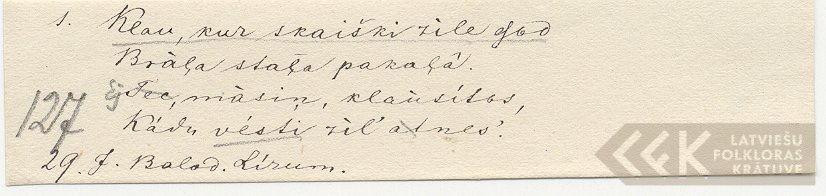 1. Klau, kur skaiški zile dzied
Brāļa staļa pakaļā.
Ej Tec, māsiņ, klausītos,
Kādu vēsti zīl' atnes'.
127
29. J. Balod. Lizum.
LATVIEŠU
FOLKLORAS
KRĀTUVE